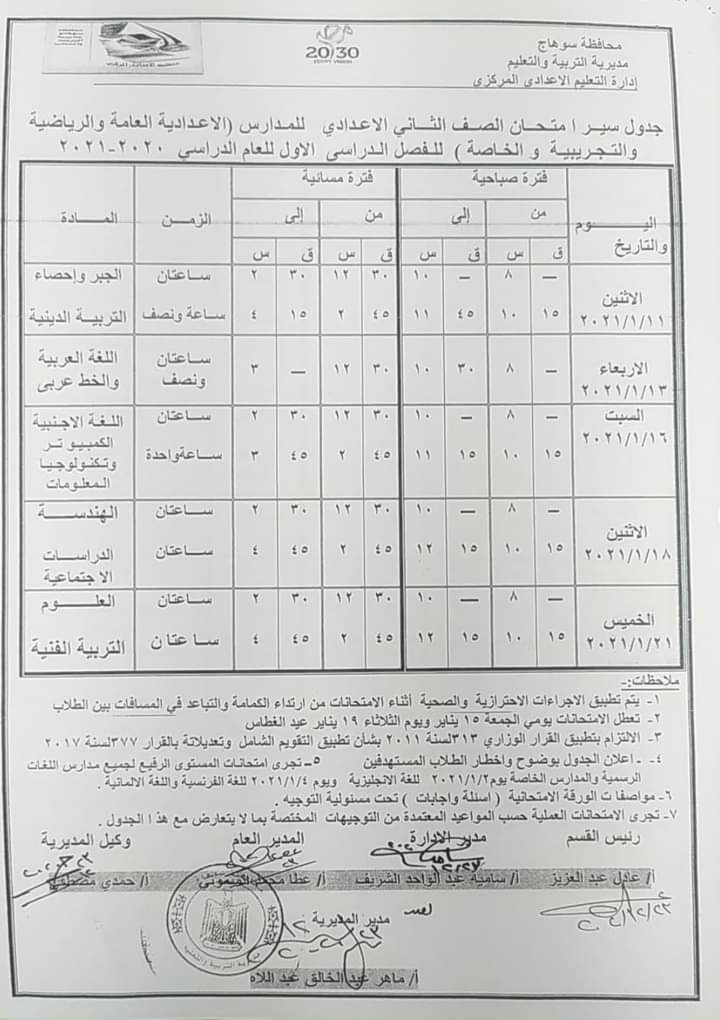 محافظة سوهاج
مديرية التربية والتعليم
إدارة التعليم الاعدادى المركزى
20/30
EGYPT VISION
جدول سير امتحان الصف الثاني الاعدادي للمدارس (الاعدادية العامة والرياضية
والتجريبية والخاصة) للفصل الدراسي الاول للعام الدراسي ٢٠٢٠-٢٠٢١
اليوم والتاريخ فترة صباحية فترة مسائية الزمن المادة
من إلى من إلى
ق س ق س ق س ق س
الاثنين ٢٠٢١/١/١١
— ٨ — ١٠ ٣٠ ١٢ ٣٠ ٢ ساعتان الجبر وإحصاء
١٥ ١٠ ٤٥ ١١ ٤٥ ٢ ١٥ ٤ ساعة ونصف التربية الدينية
الاربعاء ٢٠٢١/١/١٣
— ٨ ٣٠ ١٠ ٣٠ ١٢ — ٣ ساعتان ونصف اللغة العربية والخط عربى
السبت ٢٠٢١/١/١٦
— ٨ — ١٠ ٣٠ ١٢ ٣٠ ٢ ساعتان اللغة الاجنبية
١٥ ١٠ ١٥ ١١ ٤٥ ٢ ٤٥ ٣ ساعة واحدة الكمبيوتر وتكنولوجيا المعلومات
الاثنين ٢٠٢١/١/١٨
— ٨ — ١٠ ٣٠ ١٢ ٣٠ ٢ ساعتان الهندسة
١٥ ١٠ ١٥ ١٢ ٤٥ ٢ ٤٥ ٤ ساعتان الدراسات الاجتماعية
الخميس ٢٠٢١/١/٢١
— ٨ — ١٠ ٣٠ ١٢ ٣٠ ٢ ساعتان العلوم
١٥ ١٠ ١٥ ١٢ ٤٥ ٢ ٤٥ ٤ ساعتان التربية الفنية
ملاحظات:-
١- يتم تطبيق الاجراءات الاحترازية والصحية أثناء الامتحانات من ارتداء الكمامة والتباعد في المسافات بين الطلاب
٢- تعطل الامتحانات يومي الجمعة ١٥ يناير ويوم الثلاثاء ١٩ يناير عيد الغطاس
٣- الالتزام بتطبيق القرار الوزاري ٣١٣لسنة ٢٠١١ بشأن تطبيق التقويم الشامل وتعديلاتة بالقرار ٣٧٧لسنة ٢٠١٧
٤- اعلان الجدول بوضوح واخطار الطلاب المستهدفين ٥- تجرى امتحانات المستوى الرفيع لجميع مدارس اللغات
الرسمية والمدارس الخاصة يوم٢٠٢١/١/٢ للغة الانجليزية ويوم ٢٠٢١/١/٤ للغة الفرنسية واللغة الالمانية .
٦- مواصفات الورقة الامتحانية (اسئلة واجابات) تحت مسئولية التوجيه .
٧- تجرى الامتحانات العملية حسب المواعيد المعتمدة من التوجيهات المختصة بما لا يتعارض مع هذا الجدول .
رئيس القسم مدير الادارة المدير العام وكيل المديرية
أ/ عادل عبد العزيز أ/ سامية عبد الواحد الشريف أ/ عطا محمد الميموني أ/ حمدي مصطفى
مدير المديرية
أ/ ماهر عبد الخالق عبد اللاه